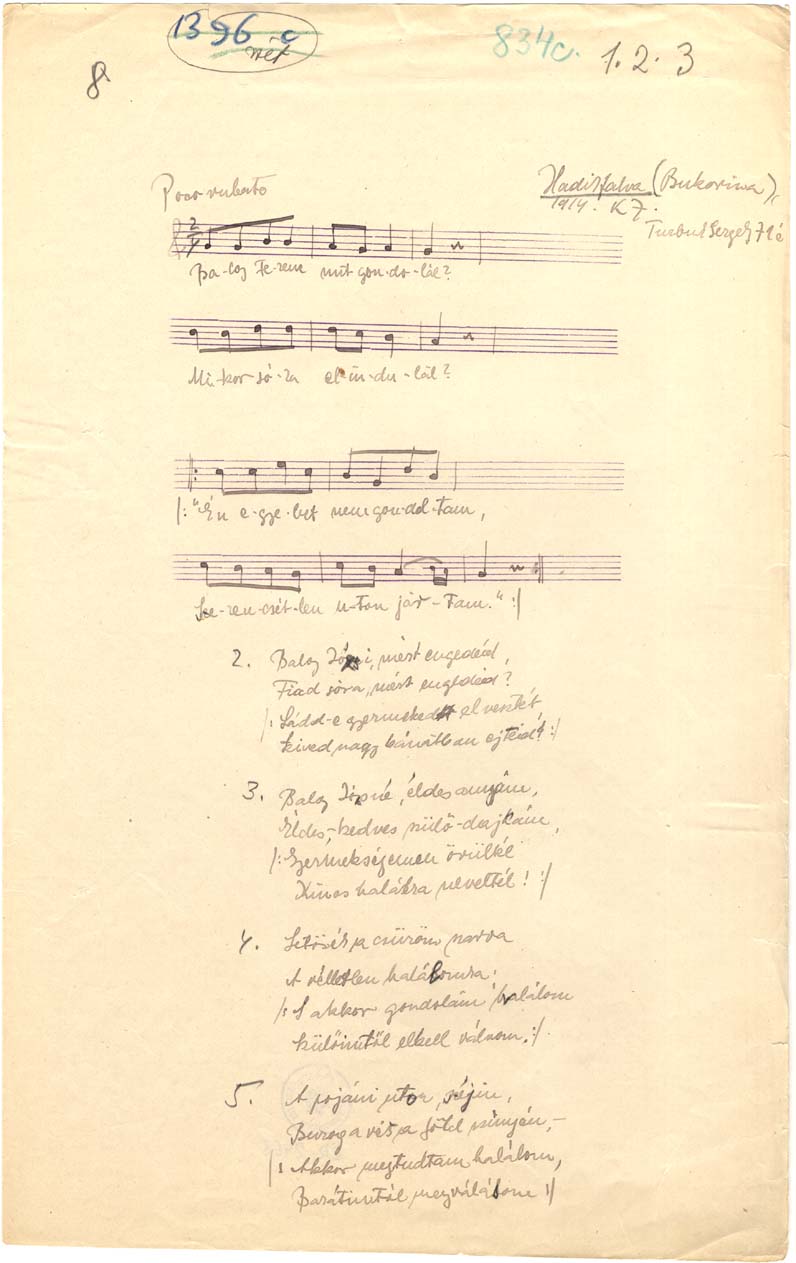 1396 c
vét
834c.
1. 2. 3
8
Poco rubato
Hadikfalva (Bukovina)
1914. K Z.
Gergely 71 é
2/4
Ba-log Fe-renc mit gon-do-lál?
Mi-kor só-ra el-in-du-lál?
|: "Én e-gye-bet nem gon-dol-tam,
Sze-ren-csét-len u-ton jár-tam." :|
2. Balog mért engedéd,
Fiad sóra, mért engedéd?
|: Ládd-e gyermeked elvesztét
Szived nagy bánatban ejtéd! :|
3. Balog édes anyám,
Édes-kedves szülő-dajkám,
|: Gyermekségemen örültél
Kinos halálra neveltél! :|
4. a csüröm sarva
A véletlen
|: S akkor gondolám halálom
Szülőimtől elkell válnom. :|
5. A pojáni uton, széjin,
a föld szinyén, –
|: Akkor megtudtam halálom,
Barátimtól megválásom :|